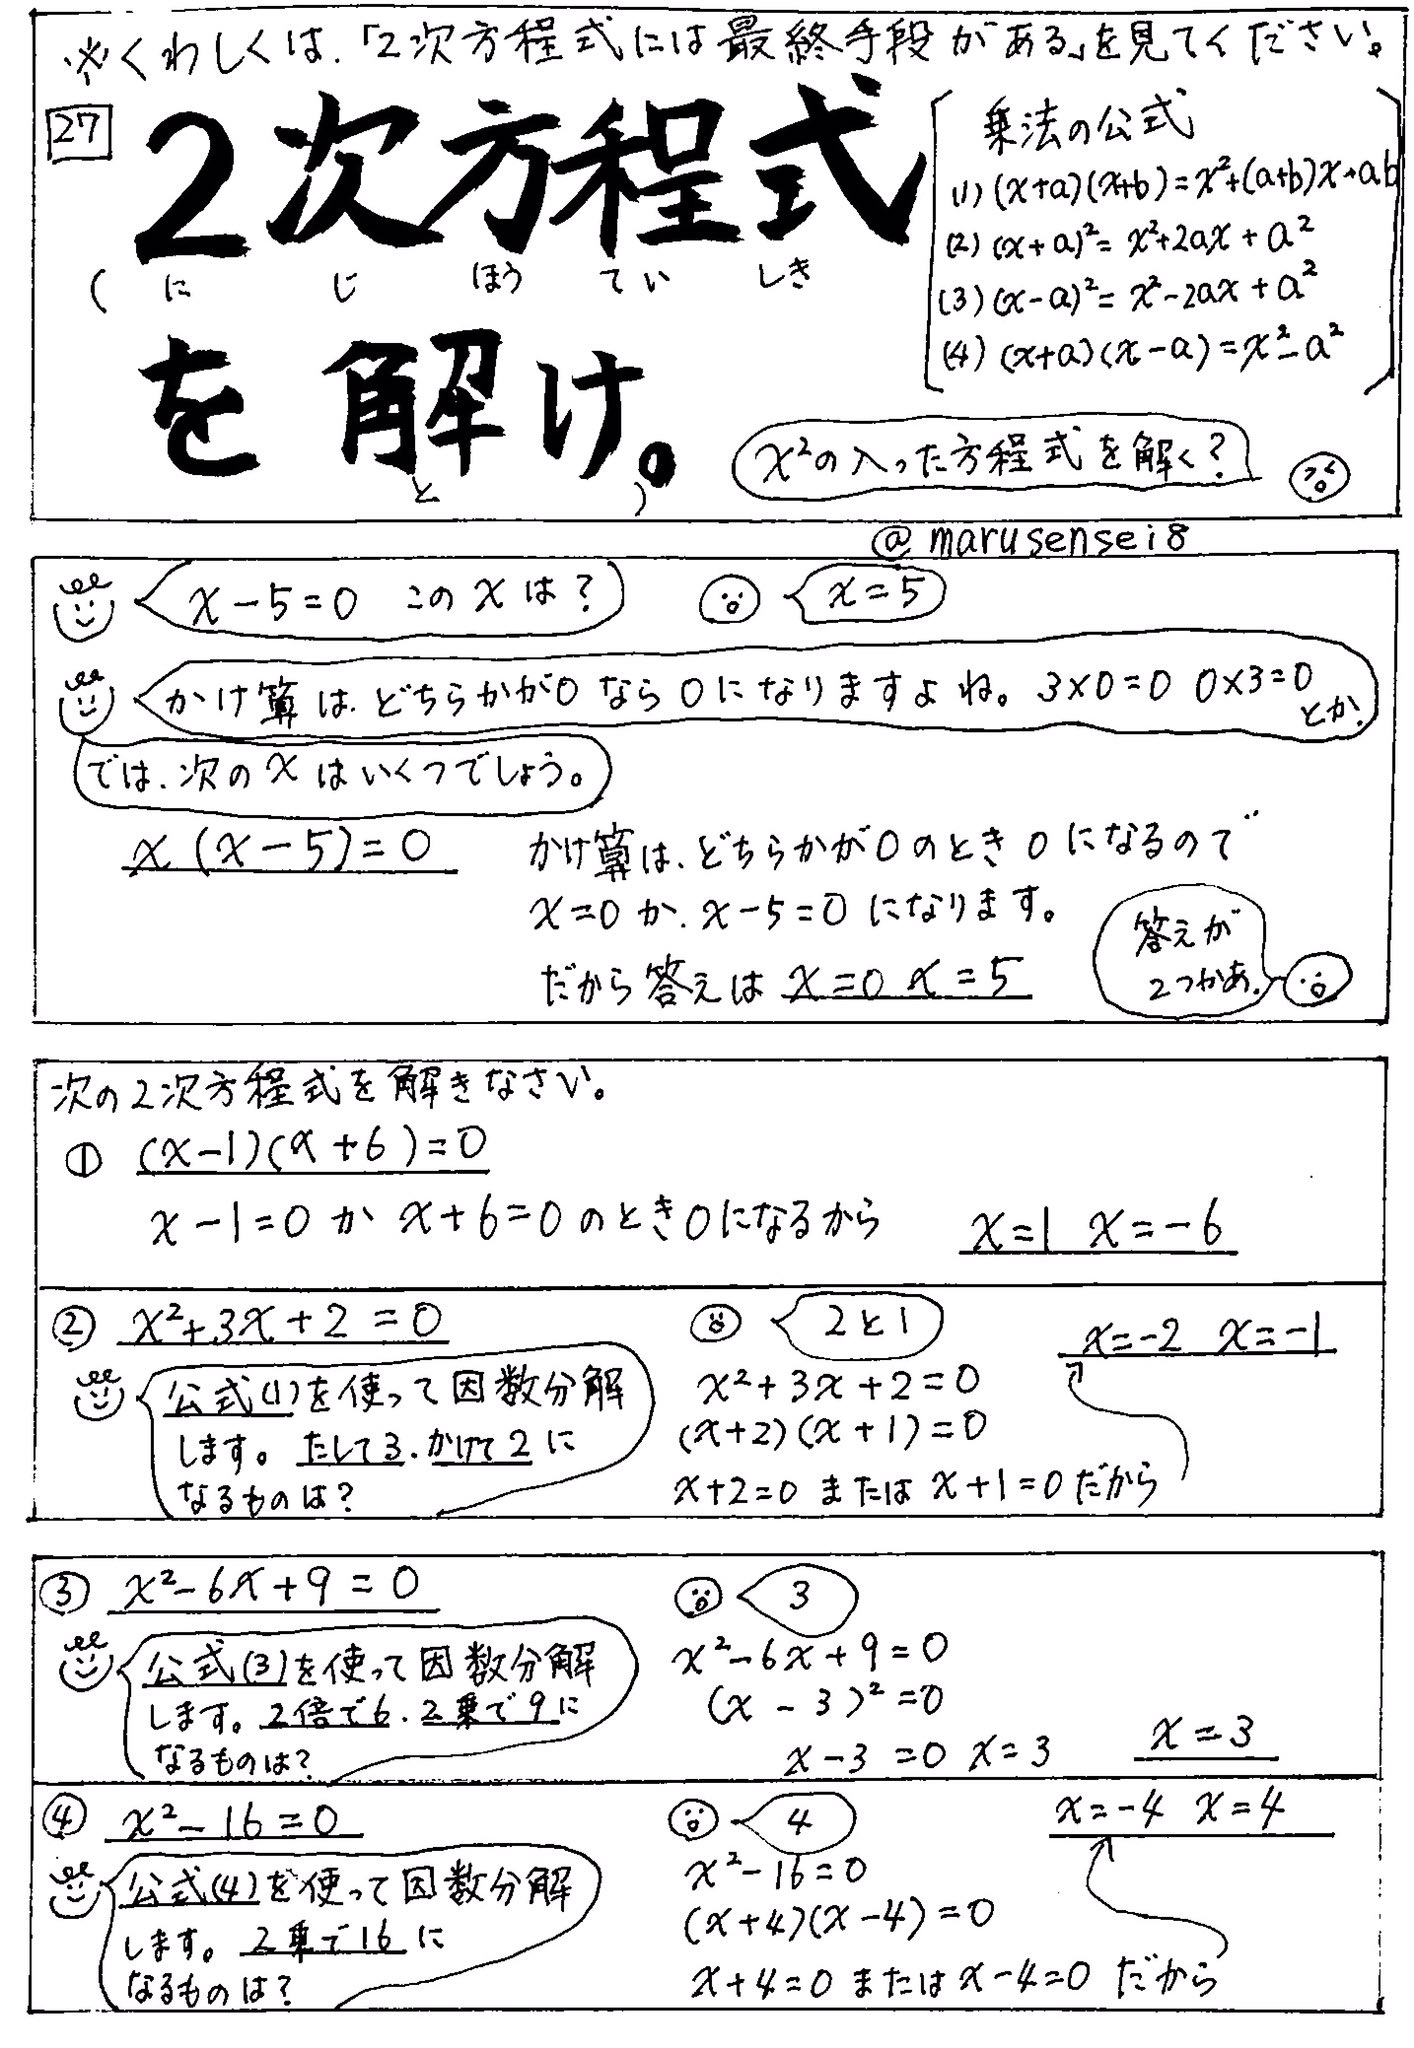 ※くわしくは、「2次方程式には最終手段がある」を見てください。
27
2次方程式
(にじほうていしき
を解け。
と)
乗法の公式
(1) (x+a)(x+b)=x²+(a+b)x+ab
(2) (x+a)²=x²+2ax+a²
(3) (x-a)²=x²-2ax+a²
(4) (x+a)(x-a)=x²-a²
x²の入った方程式を解く?
@marusensei8
x-5=0 このxは?
x=5
かけ算は、どちらかが0なら0になりますよね。3×0=0 0×3=0
とか。
では、次のxはいくつでしょう。
x(x-5)=0
かけ算は、どちらかが0のとき0になるので
x=0か、x-5=0になります。
だから答えはx=0 x=5
答えが
2つかあ。
次の2次方程式を解きなさい。
① (x-1)(x+6)=0
x-1=0か x+6=0のとき0になるから
x=1 x=-6
② x²+3x+2=0
公式(1)を使って因数分解
します。たして3、かけて2に
なるものは?
2と1
x²+3x+2=0
(x+2)(x+1)=0
x+2=0またはx+1=0だから
x=-2 x=-1
③ x²-6x+9=0
公式(3)を使って因数分解
します。2倍で6、2乗で9に
なるものは?
3
x²-6x+9=0
(x-3)²=0
x-3=0 x=3
x=3
④ x²-16=0
公式(4)を使って因数分解
します。2乗で16に
なるものは?
4
x²-16=0
(x+4)(x-4)=0
x+4=0またはx-4=0だから
x=-4 x=4